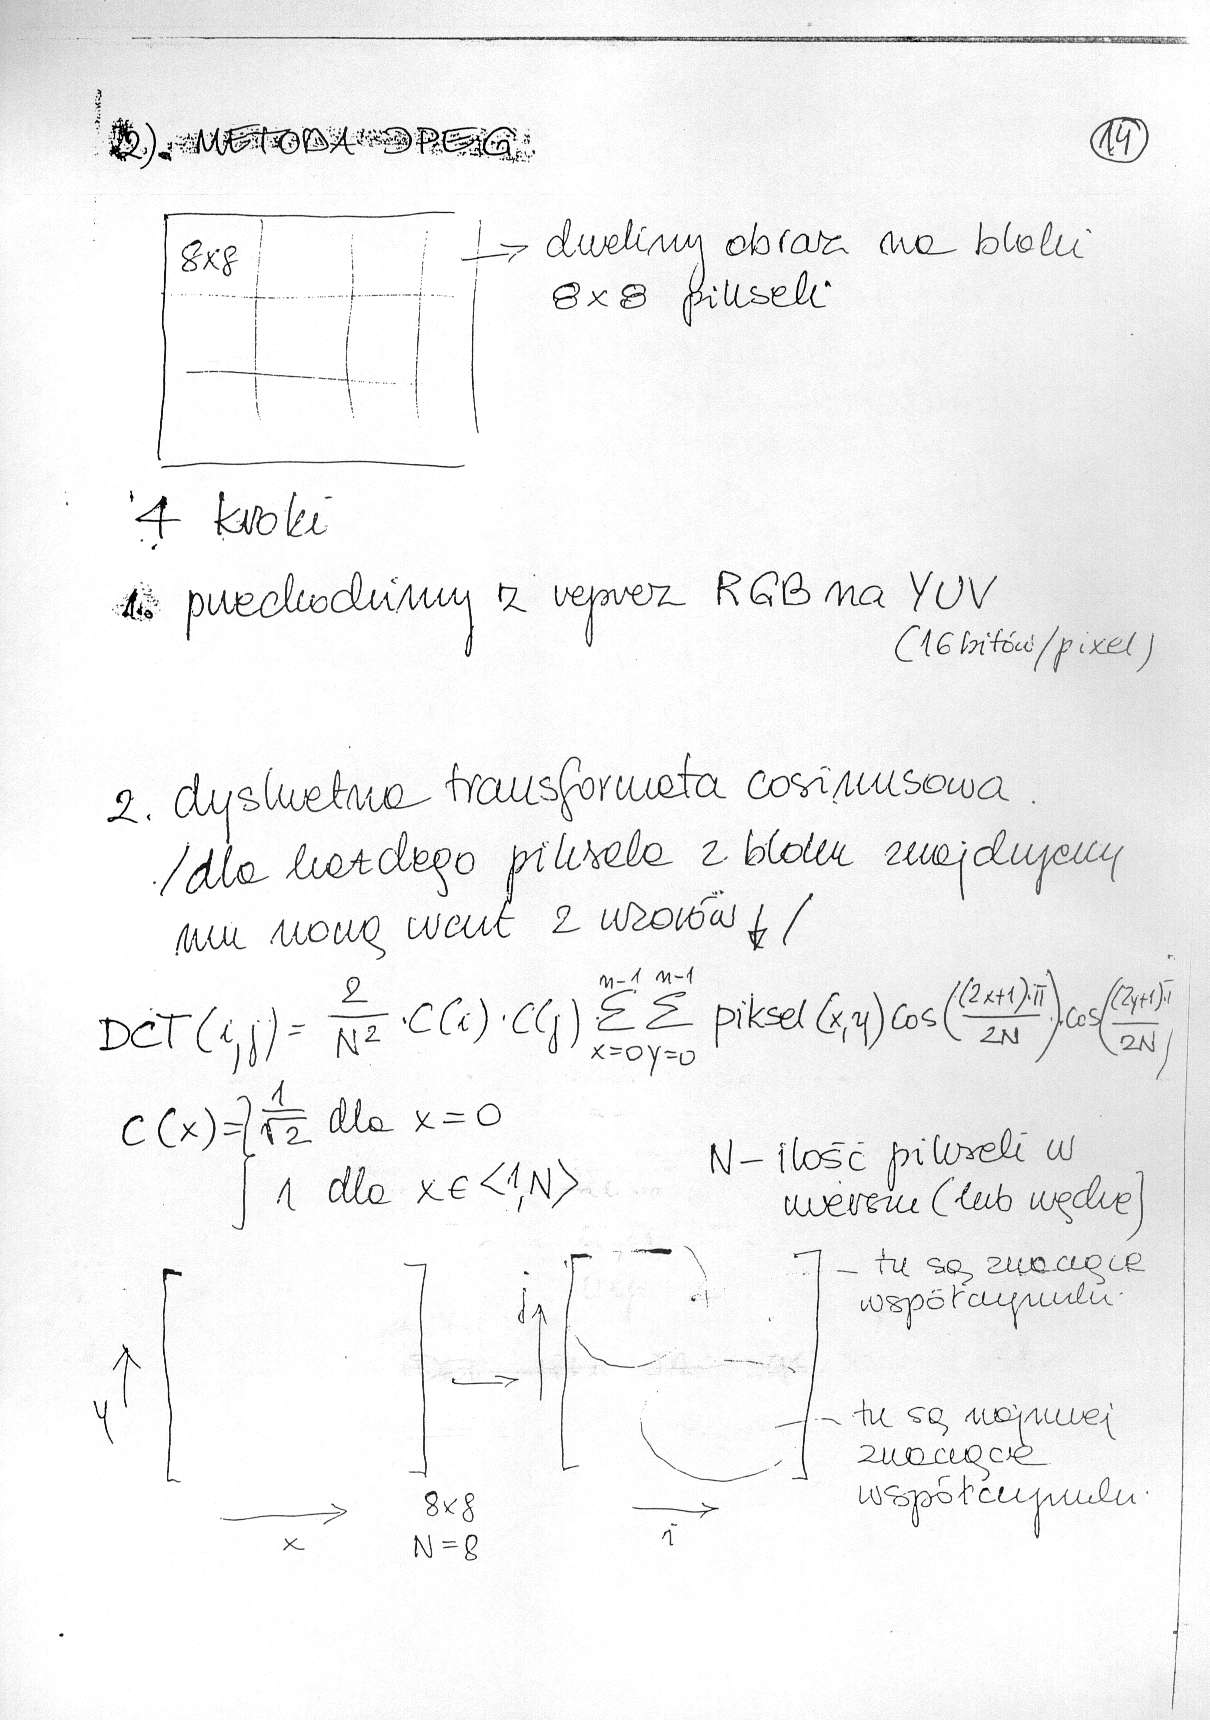 2). METODA JPEG
14
8x8
→ dzielimy obraz na bloki
8x8 pikseli
4 kroki
1. przechodzimy z reprez RGB na YUV
(16 bitów/pixel)
2. dyskretna transformata cosinusowa.
/dla każdego piksela z bloku znajdujemy
mu nową wart z wzorów ↓/
DCT(i,j) = 2/N² · C(i) · C(j) n-1 Σ x=0 n-1 Σ y=0 piksel(x,y) cos((2x+1)·π / 2N) · cos((2y+1)π / 2N)
C(x) = { 1/√2 dla x=0
1 dla x∈<1,N>
N – ilość pikseli w
wierszu (lub rzędzie)
j
– tu są znaczące
współczynniki.
y
– tu są najmniej
znaczące
współczynniki.
x
8x8
N=8
i